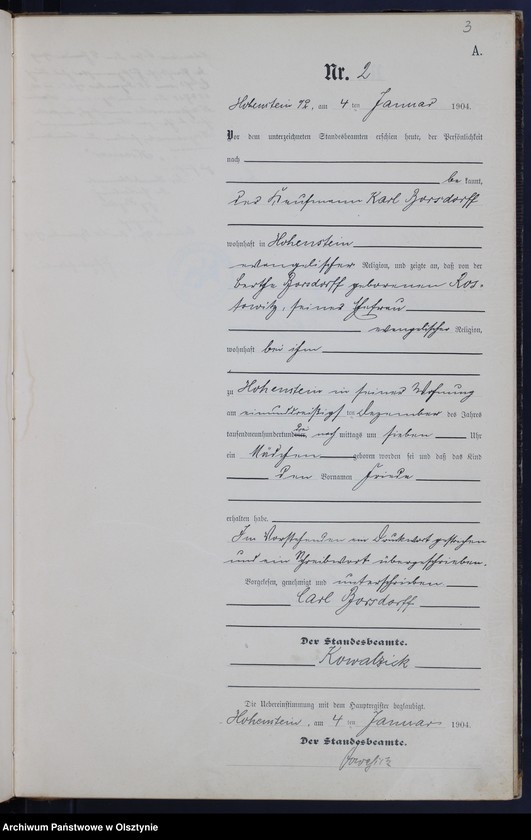 3
A.
Nr. 2
Hohenstein am 4 ten Januar 1904.
Vor dem unterzeichneten Standesbeamten erschien heute, der Persönlichkeit
nach
be kannt,
der Kaufmann Karl Borsdorff
wohnhaft in Hohenstein
evangelischer Religion, und zeigte an, daß von der
Bertha Borsdorff geborenen Ros-
towitz, seiner Ehefrau
evangelischer Religion,
wohnhaft bei ihm
zu Hohenstein in seiner Wohnung
am einunddreißigsten ten Dezember des Jahres
tausendneunhundertund drei nach mittags um sieben Uhr
ein Mädchen geboren worden sei und daß das Kind
den Vornamen Frieda
erhalten habe.
Im Vorstehenden ein Druckwort gestrichen
und ein Schreibwort übergeschrieben.
Vorgelesen, genehmigt und unterschrieben
Carl Borsdorff
Der Standesbeamte.
Kowalzick
Die Uebereinstimmung mit dem Hauptregister beglaubigt.
Hohenstein, am 4 ten Januar 1904.
Der Standesbeamte.
Archiwum Państwowe w Olsztynie